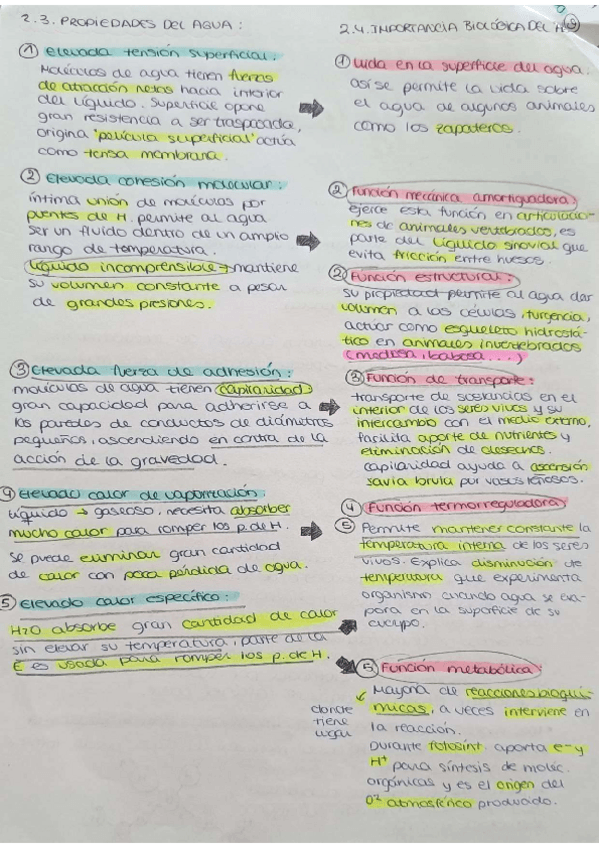 2.3. PROPIEDADES DEL AGUA:
① Elevada tensión superficial:
Moléculas de agua tienen fuerzas
de atracción netas hacia interior
del líquido. Superficie opone
gran resistencia a ser traspasada,
origina "película superficial" actúa
como tensa membrana.
② Elevada cohesión molecular:
íntima unión de moléculas por
puentes de H. permite al agua
ser un fluido dentro de un amplio
rango de temperatura.
Líquido incomprensible → mantiene
su volumen constante a pesar
de grandes presiones.
③ Elevada fuerza de adhesión:
moléculas de agua tienen capilaridad
gran capacidad para adherirse a
las paredes de conductos de diámetros
pequeños, ascendiendo en contra de la
acción de la gravedad.
4 Elevado calor de vaporización:
Líquido → gaseoso, necesita absorber
mucho calor para romper los p. de H.
Se puede eliminar gran cantidad
de calor con poca pérdida de agua.
5 Elevado calor específico:
H2O absorbe gran cantidad de calor
sin elevar su temperatura, parte de la
E es usada para romper los p. de H.
2.4. IMPORTANCIA BIOLÓGICA DEL H
① Vida en la superficie del agua.
así se permite la vida sobre
el agua de algunos animales
como los zapateros.
② Función mecánica amortiguadora)
ejerce esta función en articulacio-
nes de animales vertebrados, es
parte del líquido sinovial que
evita fricción entre huesos.
② Función estructural:
su propiedad permite al agua dar
volumen a las células, turgencia,
actuar como esqueleto hidrostá-
tico en animales invertebrados
(medusa, babosa...)
③ Función de transporte:
transporte de sustancias en el
interior de los seres vivos y su
intercambio con el medio externo,
facilita aporte de nutrientes y
eliminación de desechos.
capilaridad ayuda a ascensión
savia bruta por vasos leñosos.
④ Función termorreguladora
⑤ Permite mantener constante la
temperatura interna de los seres
vivos. Explica disminución de
temperatura que experimenta
organismo cuando agua se eva-
pora en la superficie de su
cuerpo.
⑤ Función metabólica:
donde
tiene
lugar
Mayoría de reacciones bioquí-
micas, a veces interviene en
la reacción.
Durante fotosínt. aporta e- y
H+ para síntesis de moléc.
orgánicas y es el origen del
O2 atmosférico producido.